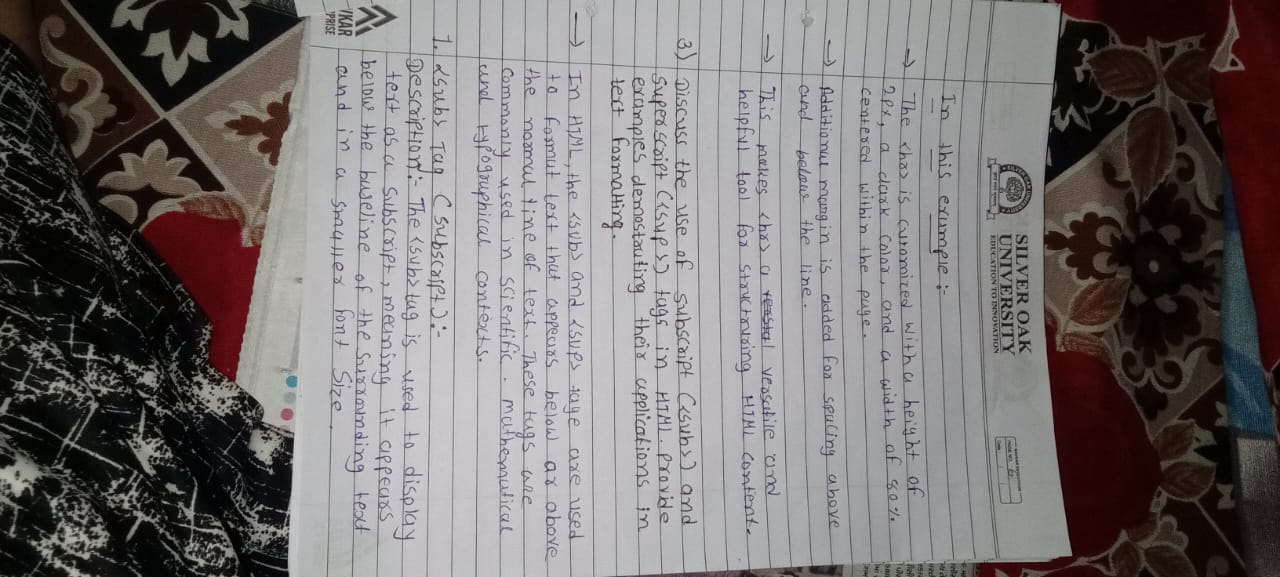 SILVER OAK
UNIVERSITY
EDUCATION TO INNOVATION
In this example :-
→ The <hr> is customized with a height of
2px, a dark color, and a width of 80%
centered within the page.
→ Additional margin is added for spacing above
and below the line.
→ This makes <hr> a vesatile and
helpful tool for structuring HTML content.
3) Discuss the use of subscript (<sub>) and
superscript (<sup>) tags in HTML. Provide
examples demostrating their applications in
text formatting.
→ In HTML, the <sub> and <sup> tage are used
to format text that appears below or above
the normal line of text. These tags are
commonly used in scientific. mathematical
and typographical contexts.
1. <sub> Tag (subscript) :-
Description :- The <sub> tag is used to display
text as a subscript, meaning it appears
below the baseline of the surrounding text
and in a smaller font size.